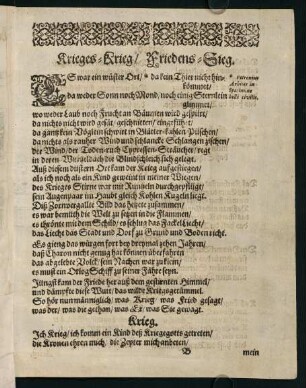 Krieges-Krieg/ Friedens-Sieg.
ES war ein wüster Ort/ * da kein Thier nicht hin-
kömmet/
da weder Sonn noch Mond/ noch einig Sternlein
glimmet/
wo weder Laub noch Frucht an Bäumen wird gespürt/
da nichts nicht wird gesät/ geschnitten/ eingeführt/
da gantz kein Vöglein schwirt in Blätter-kahlen Püschen/
da nichts als rauher Wind und schlancke Schlangen zischen/
der Wind/ der Todten-nuch Cypressen-Sträucher/ regt
in deren Wurzeldach die Blindschleich sich gelegt.
Auß diesem düstern Ort kam der Krieg aufgestiegen/
eh ich noch als ein Kind geweint in meiner Wiegen/
des Krieges Stirne war mit Runzeln durchgepflügt/
sein Augenpaar im Haubt gleich Kohlen Kugeln liegt.
Diß Zeternorgallde Bild das heyete zusammen/
es war bemüht die Welt zu setzen in die Flammen/
es thrönte mit dem Schild/ es schüss das Fackel Liecht/
das Liecht das Stadt und Dorf zu Grund und Boden richt.
Es gieng das würgen fort bey dreymal zehen Jahren/
daß Charon nicht genug hat können überfahren
das abgelebte Volck/ sein Nachen war zu klein/
es must ein Orlog Schiff zu seiner Fähre seyn.
Jtzt kam der Friede her auß dem gestirnten Himmel/
und dämpfte diese Wut/ das wilde Kriegsgetümmel.
So hör nun männiglich/ was Krieg/ was Fried gesagt/
was der/ was die gethan/ was Er/ was Sie gewagt.
Krieg.
Jch Krieg/ ich komm ein Kind deß Kriegesgotts getreten/
die Kronen ehren mich/ die Zepter mich anbeten/
B
mein